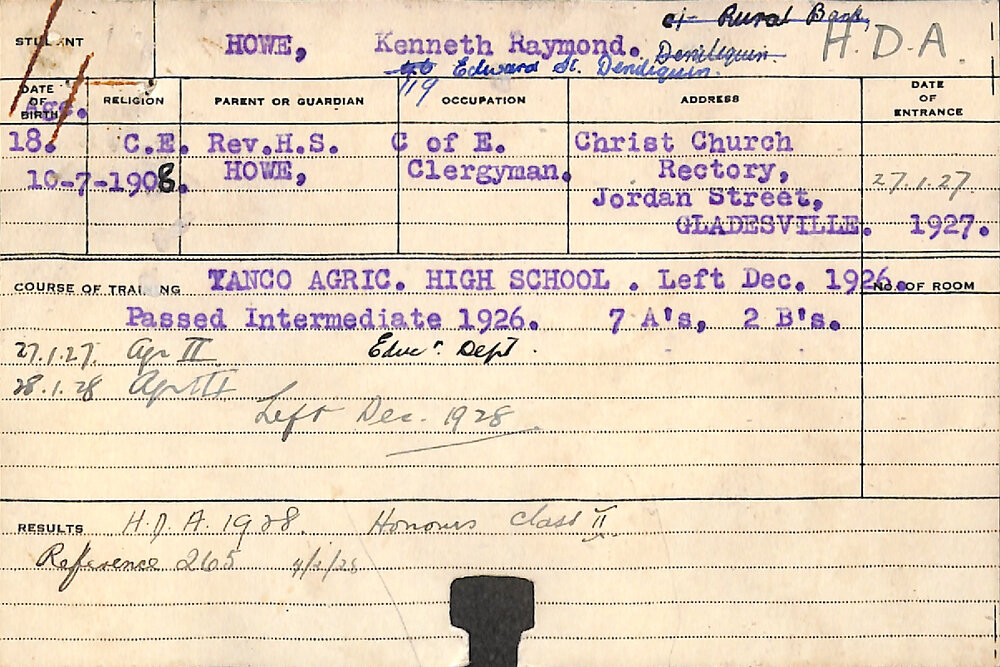 c/- Rural Bank,
STUDENT HOWE, Kenneth Raymond. Deniliquin. H.D.A.
Edward St. Deniliquin.
119
DATE OF BIRTH RELIGION PARENT OR GUARDIAN OCCUPATION ADDRESS DATE OF ENTRANCE
Age.
18. C.E. Rev.H.S. C of E. Christ Church
10-7-1908. HOWE, Clergyman. Rectory, 27.1.27.
Jordan Street,
GLADESVILLE. 1927.
COURSE OF TRAINING YANCO AGRIC. HIGH SCHOOL . Left Dec. 1926. NO. OF ROOM
Passed Intermediate 1926. 7 A's, 2 B's.
27.1.27. Agr II Educn. Dept.
28.1.28 Agr III
Left Dec. 1928
RESULTS H.D.A. 1928. Honours Class II
Reference 265